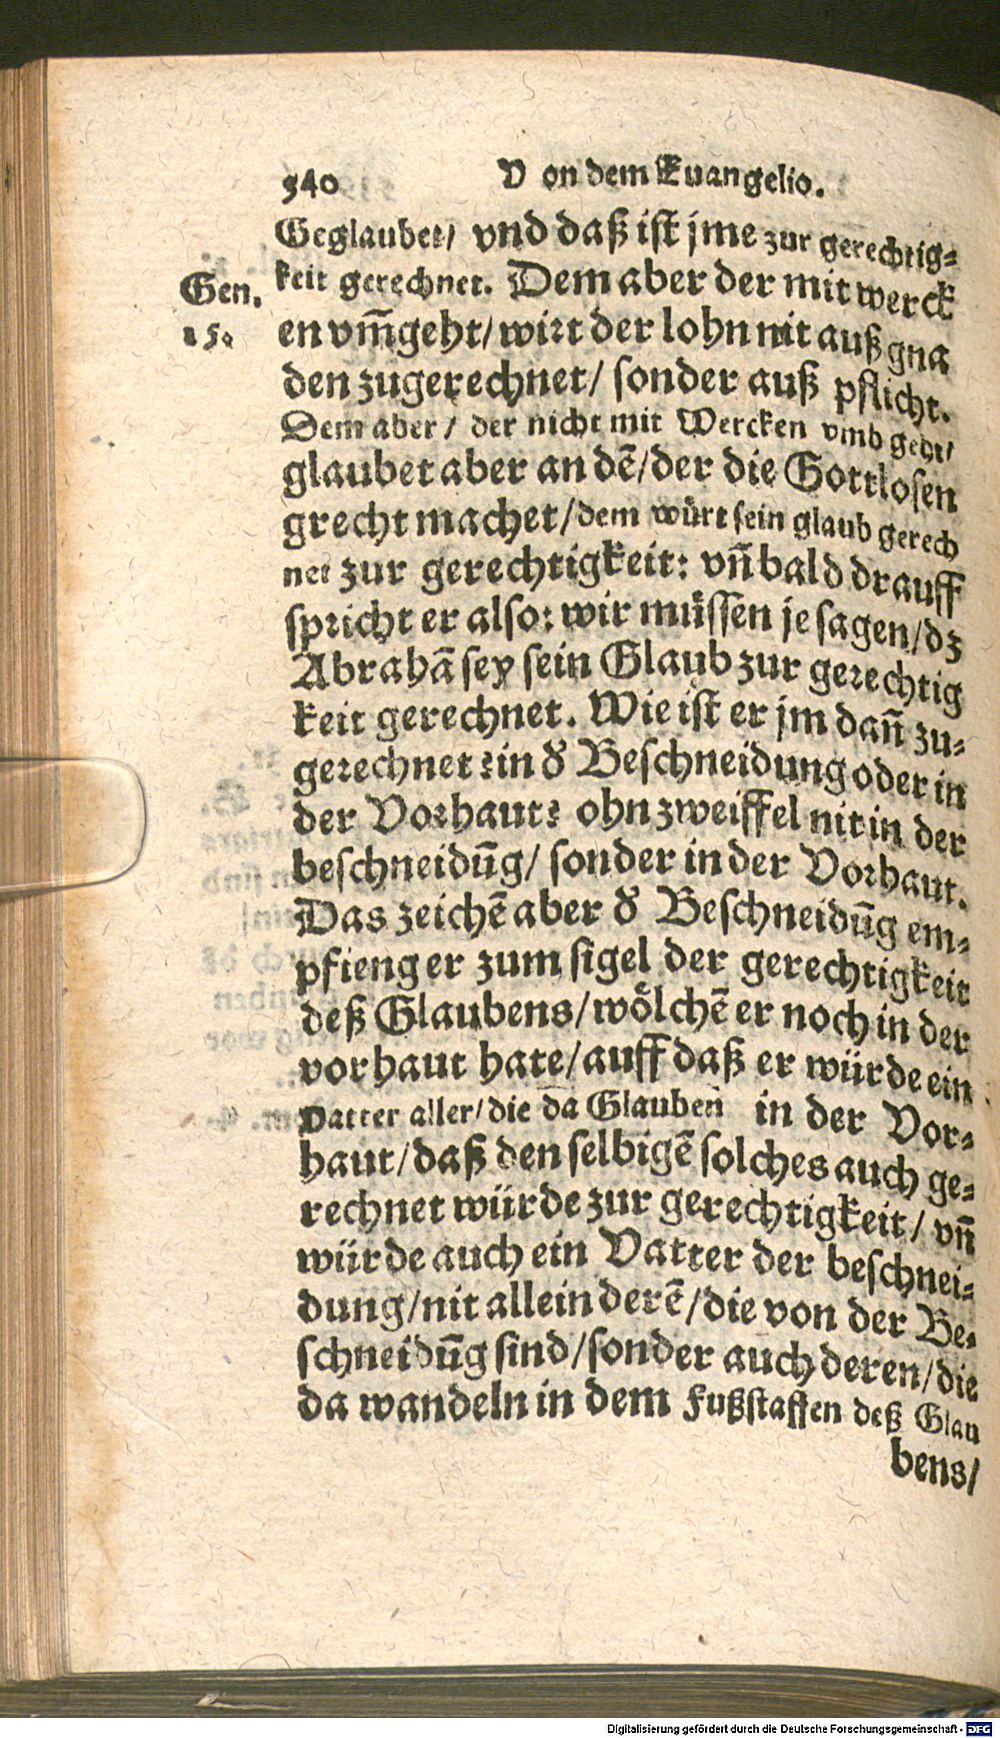 540 Von dem Euangelio.
Geglaubet/ vnd daß ist jme zur gerechtig=
keit gerechnet. Dem aber der mit werck
Gen.
15.
en vm̃geht/ wirt der lohn nit auß gna
den zugerechnet/ sonder auß pflicht.
Dem aber/ der nicht mit Wercken vmb geht/
glaubet aber an dē/ der die Gottlosen
grecht machet/ dem würt sein glaub gerech
net zur gerechtigkeit: vñ bald drauff
spricht er also: wir müssen je sagen/ dz
Abrahā sey sein Glaub zur gerechtig
keit gerechnet. Wie ist er jm dañ zu=
gerechnet? in d' Beschneidung oder in
der Vorhaut? ohn zweiffel nit in der
beschneidūg/ sonder in der Vorhaut.
Das zeichē aber d' Beschneidūg em=
pfieng er zum sigel der gerechtigkeit
deß Glaubens/ wölchē er noch in der
vorhaut hate/ auff daß er würde ein
Vatter aller/ die da Glauben in der Vor=
haut/ daß den selbigē solches auch ge=
rechnet würde zur gerechtigkeit/ vñ
würde auch ein Vatter der beschnei=
dung/ nit allein derē/ die von der Be=
schneidūg sind/ sonder auch deren/ die
da wandeln in dem Fußstaffen deß Glau
bens/
Digitalisierung gefördert durch die Deutsche Forschungsgemeinschaft - DFG